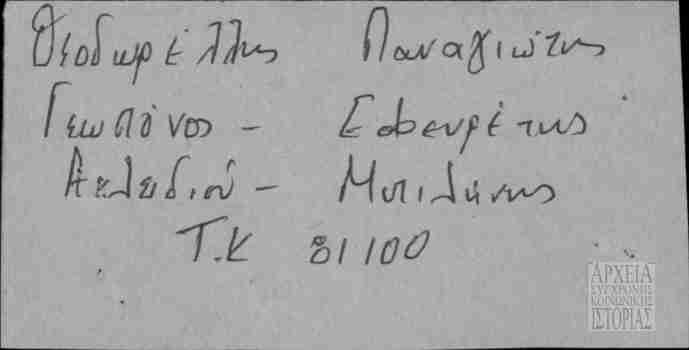 Θεοδωρέλλης Παναγιώτης
Γεωπόνος - Εφευρέτης
Αχλαδιού - Μυτιλήνης
Τ.Κ 81100
ΑΡΧΕΙΑ
ΣΥΓΧΡΟΝΗΣ
ΚΟΙΝΩΝΙΚΗΣ
ΙΣΤΟΡΙΑΣ